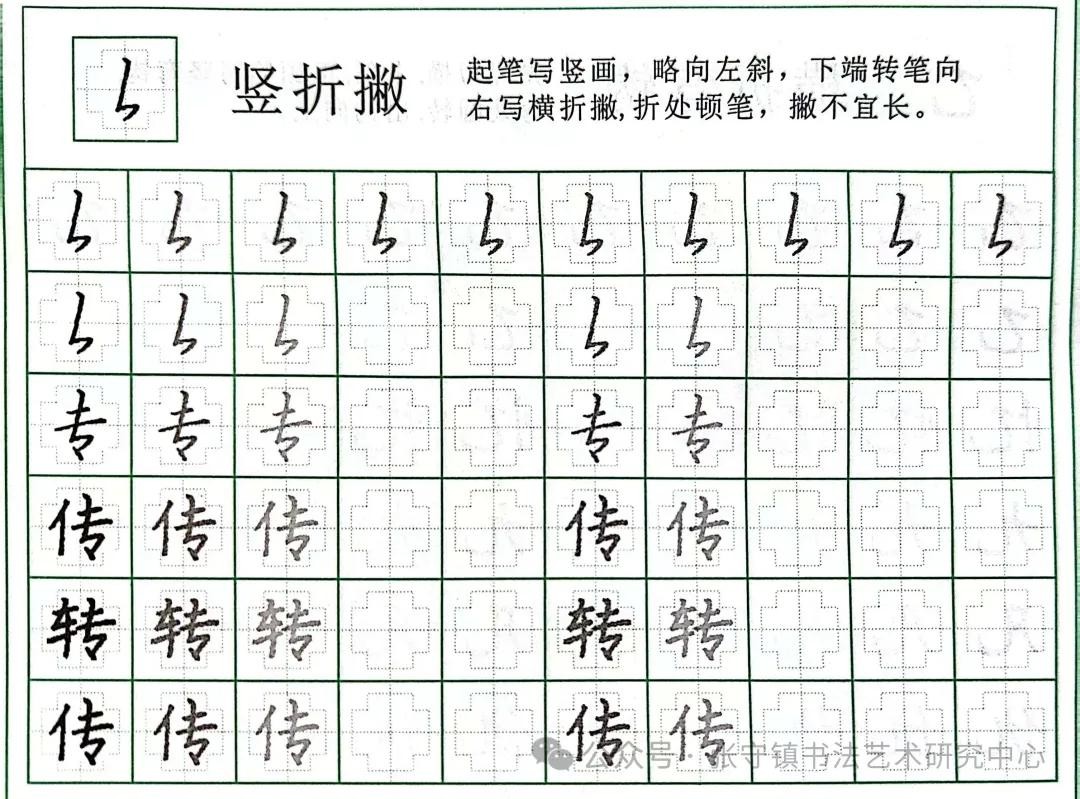 竖折撇
起笔写竖画，略向左斜，下端转笔向
右写横折撇,折处顿笔，撇不宜长。
专 专 专 专 专
传 传 传 传 传
转 转 转 转 转
传 传 传 传 传
公众号·张守镇书法艺术研究中心